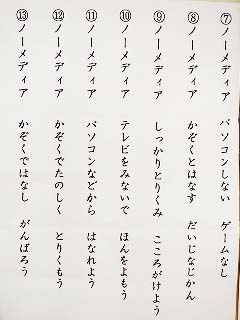 ⑦ノーメディア　パソコンしない　ゲームなし
⑧ノーメディア　かぞくとはなす　だいじなじかん
⑨ノーメディア　しっかりとりくみ　こころがけよう
⑩ノーメディア　テレビをみないで　ほんをよもう
⑪ノーメディア　パソコンなどから　はなれよう
⑫ノーメディア　かぞくでたのしく　とりくもう
⑬ノーメディア　かぞくではなし　がんばろう